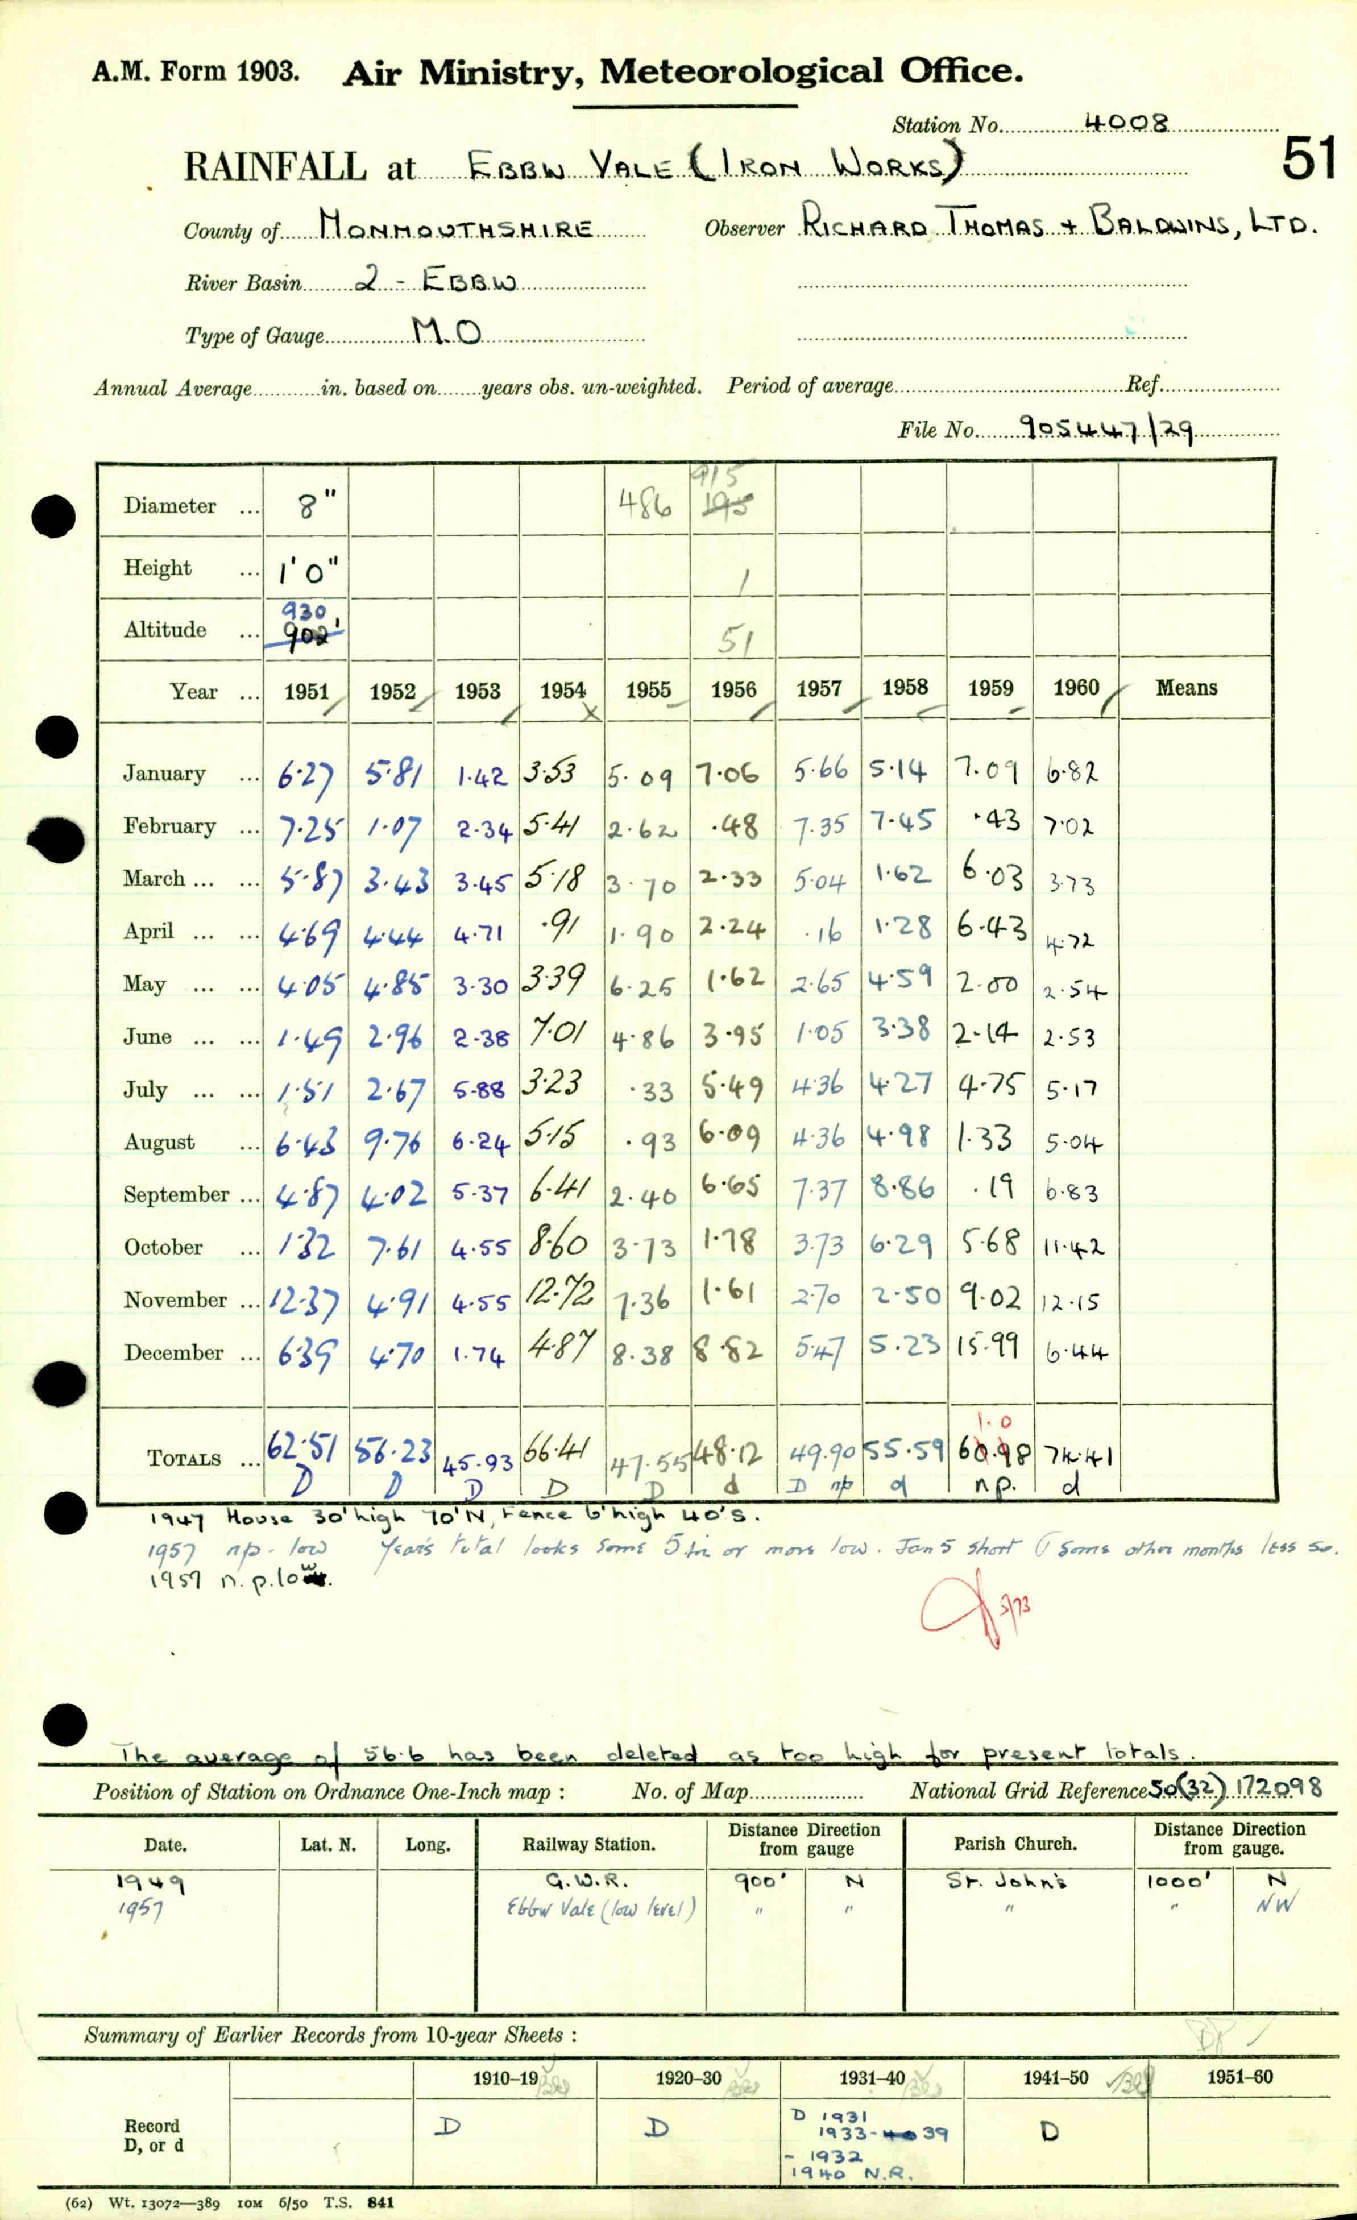 A.M. Form 1903. Air Ministry, Meteorological Office.
Station No. 4008
51
RAINFALL at EBBW VALE (IRON WORKS)
County of MONMOUTHSHIRE Observer RICHARD THOMAS + BALDWINS, LTD.
River Basin 2 - EBBW
Type of Gauge M.O
Annual Average in. based on years obs. un-weighted. Period of average Ref.
File No. 905447/29
915
Diameter ... 8" 486 195
Height ... 1'0" 1
930
Altitude ... 902' 51
Year ... 1951 1952 1953 1954 1955 1956 1957 1958 1959 1960 Means
January ... 6.27 5.81 1.42 3.53 5.09 7.06 5.66 5.14 7.09 6.82
February ... 7.25 1.07 2.34 5.41 2.62 .48 7.35 7.45 .43 7.02
March ... ... 5.87 3.43 3.45 5.18 3.70 2.33 5.04 1.62 6.03 3.73
April ... ... 4.69 4.44 4.71 .91 1.90 2.24 .16 1.28 6.43 4.72
May ... ... 4.05 4.85 3.30 3.39 6.25 1.62 2.65 4.59 2.00 2.54
June ... ... 1.49 2.96 2.38 7.01 4.86 3.95 1.05 3.38 2.14 2.53
July ... ... 1.51 2.67 5.88 3.23 .33 5.49 4.36 4.27 4.75 5.17
August ... 6.43 9.76 6.24 5.15 .93 6.09 4.36 4.98 1.33 5.04
September ... 4.87 4.02 5.37 6.41 2.40 6.65 7.37 8.86 .19 6.83
October ... 1.32 7.61 4.55 8.60 3.73 1.78 3.73 6.29 5.68 11.42
November ... 12.37 4.91 4.55 12.72 7.36 1.61 2.70 2.50 9.02 12.15
December ... 6.39 4.70 1.74 4.87 8.38 8.82 5.47 5.23 15.99 6.44
1.0
TOTALS ... 62.51 56.23 45.93 66.41 47.55 48.12 49.90 55.59 60.98 74.41
D D D D D d D np d n.p. d
1947 House 30' high 70'N, Fence 6' high 40'S.
1957 np - low Year's total looks some 5 in or more low. Jan 5 short & some other months less so.
1957 n.p. low.
5/73
The average of 56.6 has been deleted as too high for present totals.
Position of Station on Ordnance One-Inch map : No. of Map National Grid Reference SO(32) 172098
Date. Lat. N. Long. Railway Station. Distance Direction from gauge Parish Church. Distance Direction from gauge.
1949 G.W.R. 900' N St. John's 1000' N
1957 Ebbw Vale (low level) " " " " NW
Summary of Earlier Records from 10-year Sheets :
1910–19 1920–30 1931–40 1941–50 1951–60
Record D, or d D D D 1931 D
1933-39
- 1932
1940 N.R.
(62) Wt. 13072—389 10M 6/50 T.S. 841